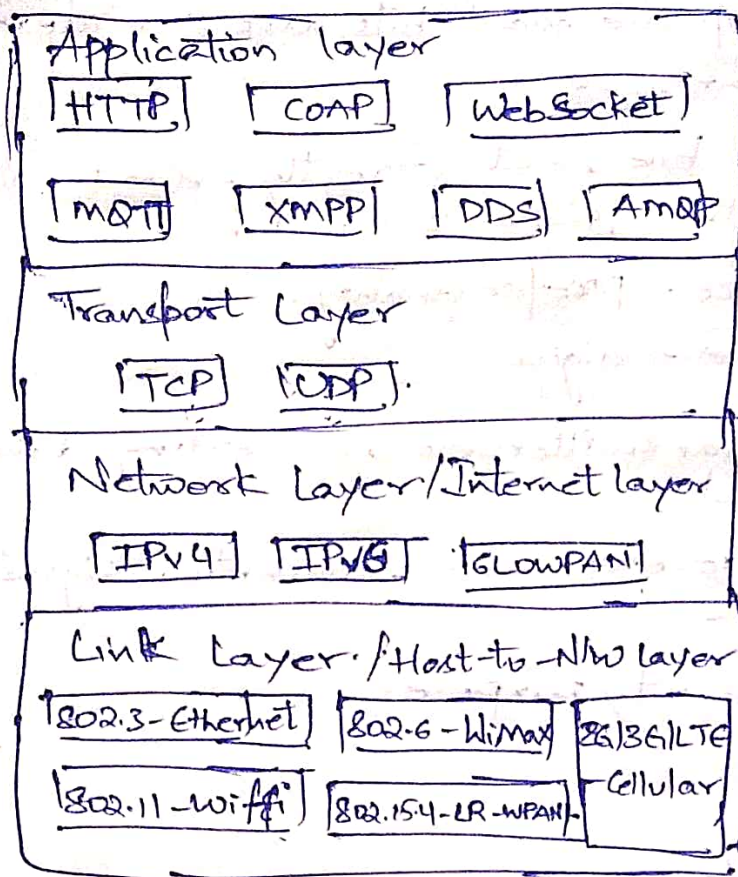 Application layer
HTTP COAP WebSocket
MQTT XMPP DDS AMQP
Transport Layer
TCP UDP.
Network Layer/Internet layer
IPv4 IPv6 6LOWPAN
Link Layer./Host-to-N/W layer
802.3-Ethernet 802.6-WiMax 2G/3G/LTE
-Cellular
802.11-wiffi 802.15.4-LR-WPAN-